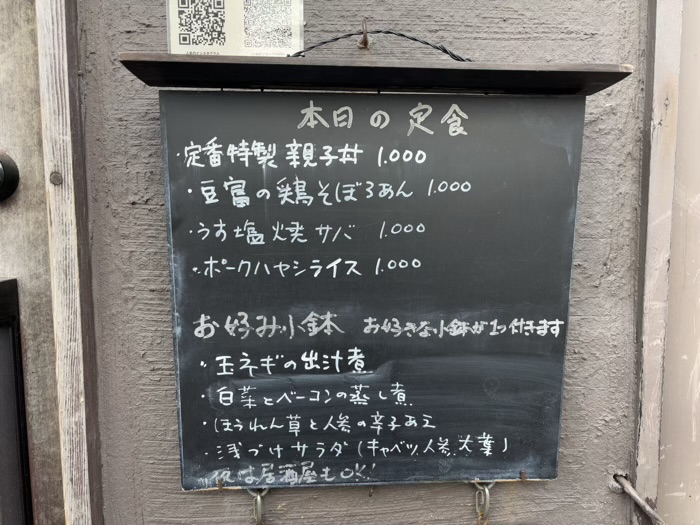 本日の定食
・定番特製 親子丼 1.000
・豆富の鶏そぼろあん 1.000
・うす塩焼サバ 1.000
・ポークハヤシライス 1.000
お好み小鉢 お好きな小鉢が1つ付きます
・玉ネギの出汁煮
・白菜とベーコンの蒸し煮
・ほうれん草と人参の辛子あえ
・浅づけサラダ(キャベツ.人参.大葉)
夜は居酒屋もOK!